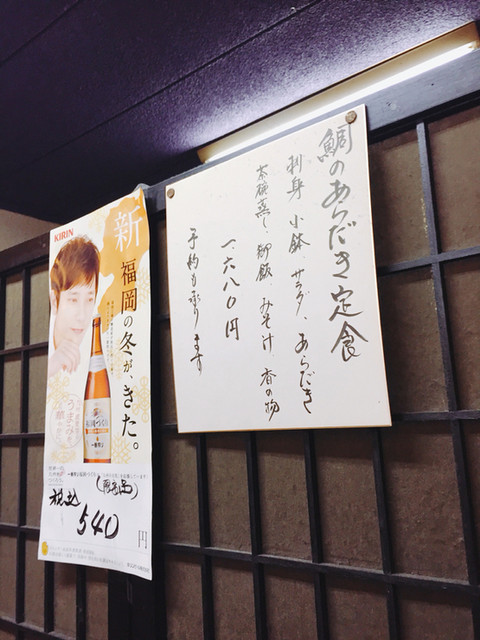 鯛のあらだき定食
刺身、小鉢、サラダ、あらだき
茶碗蒸し、御飯、みそ汁、香の物
一、六八〇円
予約も承ります
KIRIN
新
福岡の冬が、きた。
税込
540
円